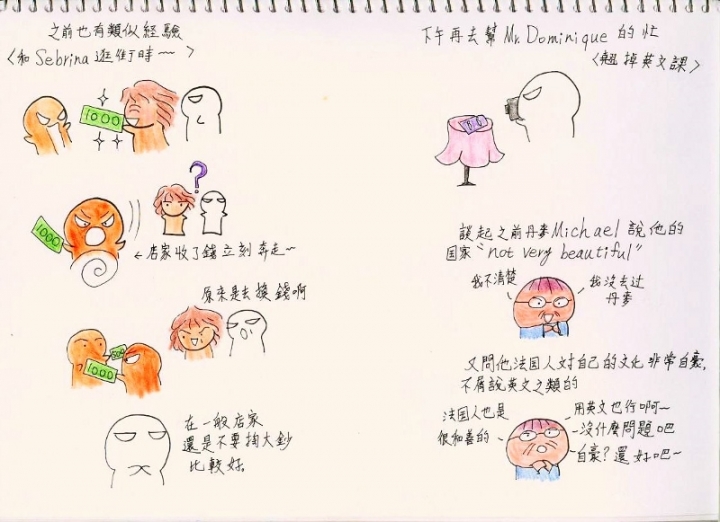 之前也有類似經驗
〈和Sebrina逛街時～〉
1000
?
1000
←店家收了錢立刻奔走~
原來是去換錢啊
500
1000
在一般店家
還是不要掏大鈔
比較好。
下午再去幫Mr. Dominique的忙
〈翹掉英文課〉
談起之前丹麥Michael說他的
国家"not very beautiful"
我不清楚
我沒去过
丹麥
又問他法国人对自己的文化非常自豪,
不屑說英文之類的
法国人也是
很和善的
用英文也行啊~
沒什麼問題吧
自豪?還好吧~